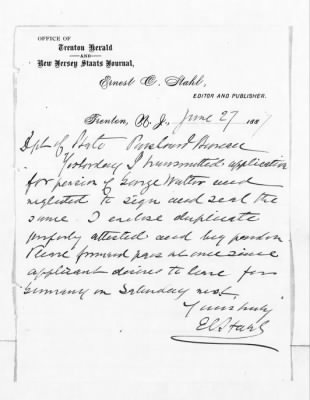 OFFICE OF
Trenton Herald
AND
New Jersey Staats Journal,
Ernest C. Stahl,
EDITOR AND PUBLISHER.
Trenton, N. J., June 27 1887
Dpt of State Passport Bureau
Yesterday I transmitted application
for pension of George Walter and
neglected to sign and seal the
same. I enclose duplicate
properly attested and beg pardon
Please forward pass at once since
applicant desires to leave for
Germany on Saturday next.
Yours truly
E C Stahl